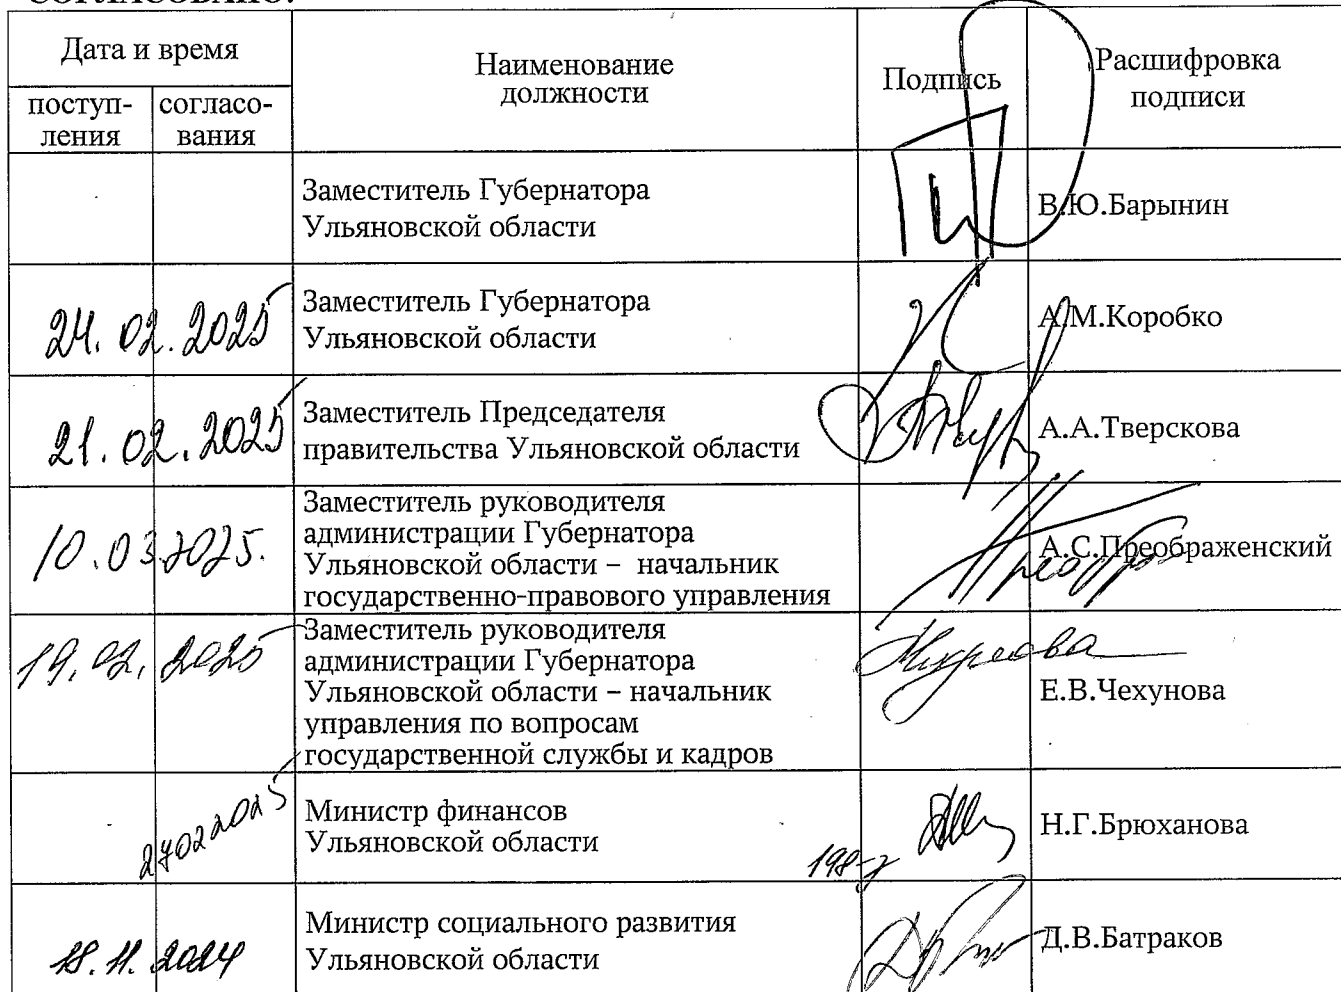 СОГЛАСОВАНО:
Дата и время
поступ-
ления
согласо-
вания
Наименование
должности
Подпись
Расшифровка
подписи
Заместитель Губернатора
Ульяновской области
В.Ю.Барынин
24.02.2025
Заместитель Губернатора
Ульяновской области
А.М.Коробко
21.02.2025
Заместитель Председателя
правительства Ульяновской области
А.А.Тверскова
10.03.2025.
Заместитель руководителя
администрации Губернатора
Ульяновской области – начальник
государственно-правового управления
А.С.Преображенский
19.02.2025
Заместитель руководителя
администрации Губернатора
Ульяновской области – начальник
управления по вопросам
государственной службы и кадров
Е.В.Чехунова
27022025
Министр финансов
Ульяновской области
Н.Г.Брюханова
18.11.2024
Министр социального развития
Ульяновской области
Д.В.Батраков